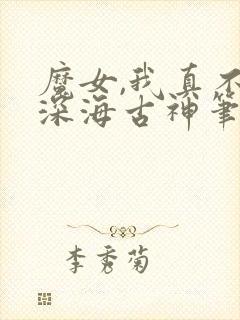 魔女,我真不
深海古神筆
李秀菊